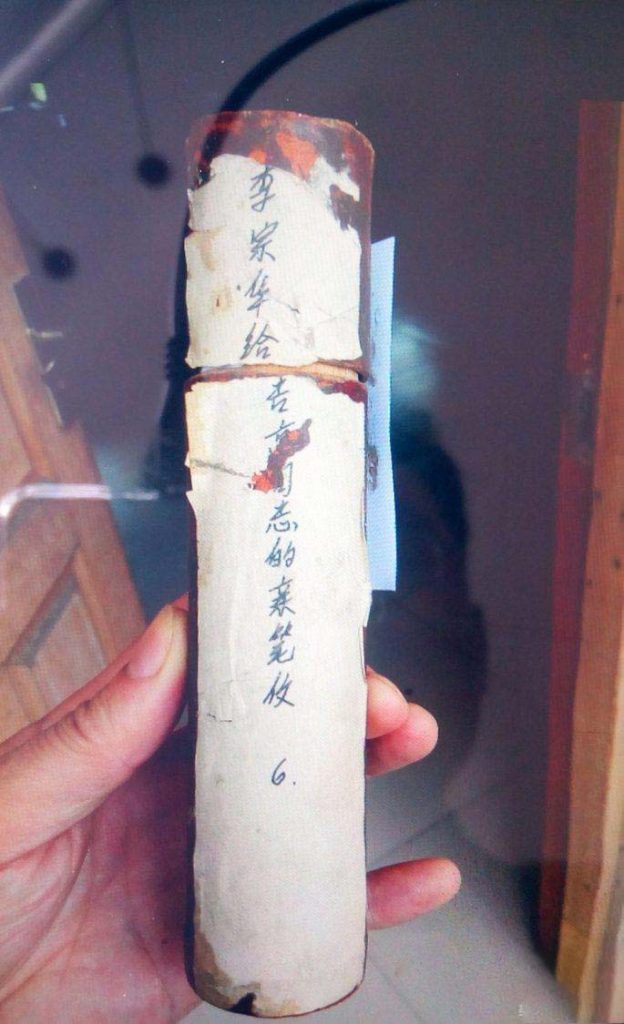 李宗华给吉同志的亲笔
6.